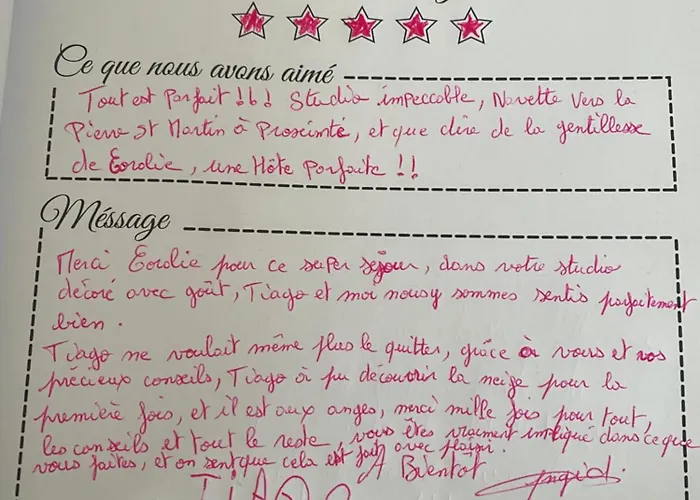 Ce que nous avons aimé
Tout est Parfait !!! Studio impeccable, Navette Vers la
Pierre St Martin à Proximité, et que dire de la gentillesse
de Eorolie, une Hôte Parfaite !!
Méssage
Merci Eorolie pour ce super séjour, dans votre studio
décoré avec goût, Tiago et moi nous y sommes sentis parfaitement
bien.
Tiago ne voulait même plus le quitter, grâce à vous et vos
précieux conseils, Tiago à pu découvrir la neige pour la
première fois, et il est aux anges, merci mille fois pour tout,
les conseils et tout le reste, vous êtes vraiment impliqué dans ce que
vous faites, et on sent que cela est fait avec plaisir.
A Bientot Ingrid.
TIAGO